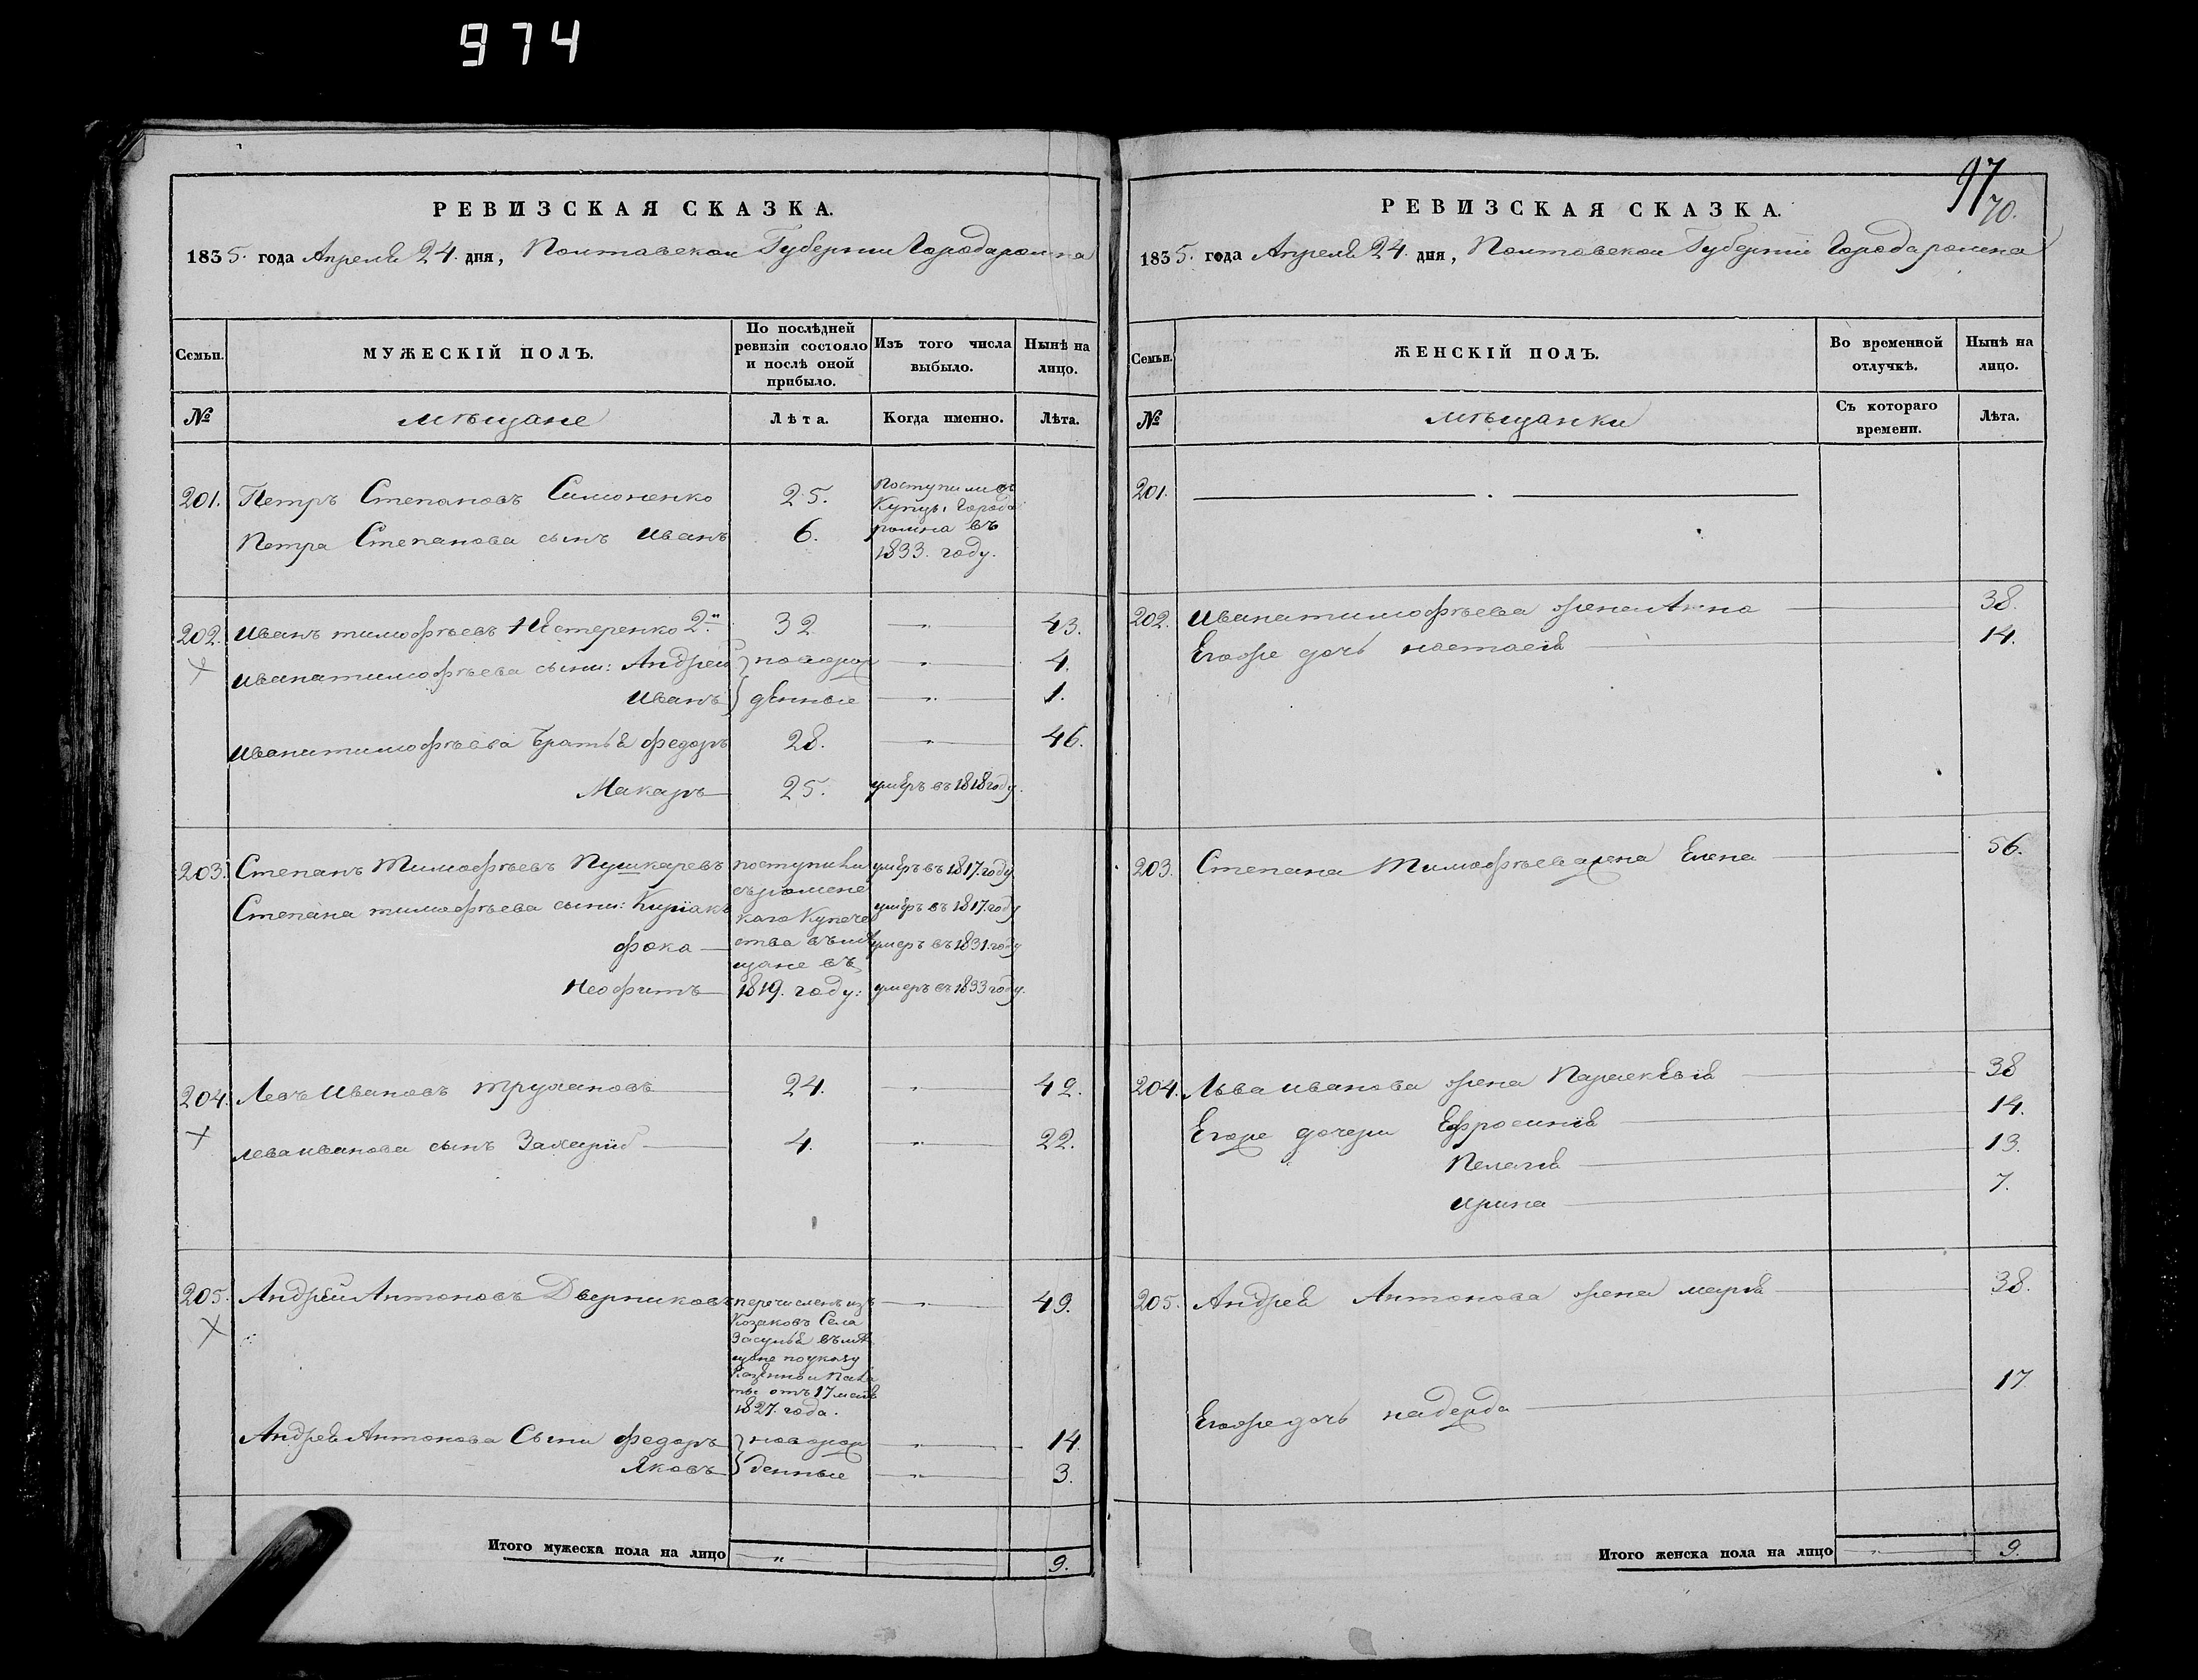 974
РЕВИЗСКАЯ СКАЗКА.
1835. года Апреля 24. дня, Полтавской Губернии Города ромна
Семьи.
МУЖЕСКІЙ ПОЛЪ.
По послѣдней ревизіи состояло и послѣ оной прибыло.
Изъ того числа выбыло.
Нынѣ на лицо.
№
мѣщане
Лѣта.
Когда именно.
Лѣта.
201. Петръ Степановъ Симоненко 25. поступили въ
Купцы Города
Петра Степанова сынъ Иванъ 6. ромна въ
1833. году.
202. Иванъ тимофѣевъ Нестеренко 2й 32 — " — 43.
Ивана тимофѣева сыны: Андрей } новорож — " — 4.
Иванъ } денные — " — 1.
Ивана тимофѣева братья федоръ 28. — " — 46.
Макаръ 25. умеръ въ 1818 году.
203. Степанъ Тимофѣевъ Пушкаревъ поступили умеръ въ 1817. году
съ роменс
Степана тимофѣева сыны: Киріакъ каго Купече умеръ въ 1817. году
фока — ства въ мѣ умеръ въ 1831. году
щане въ
Неофитъ — 1819. году: умеръ въ 1833 году.
204. Левъ Ивановъ Трухановъ 24. — " — 42.
Лева иванова сынъ Захарій 4. — " — 22.
205. Андрей Антоновъ Дверниковъ перечисленъ изъ — " — 49.
Козаковъ Села
Засулья въ мѣ
щане по указу
Казенной Пала
ты отъ 17 мая
1827. года.
Андрея Антонова Сыны федоръ } новорож — " — 14.
Яковъ } денные — " — 3.
Итого мужеска пола на лицо " 9.
97
70.
РЕВИЗСКАЯ СКАЗКА.
1835. года Апреля 24. дня, Полтавской Губерніи Города ромна
Семьи.
ЖЕНСКІЙ ПОЛЪ.
Во временной отлучкѣ.
Нынѣ на лицо.
№
мѣщанки
Съ котораго времени.
Лѣта.
201. — . —
202. Ивана тимофѣева жена Анна — 38.
Егоже дочь настасія — 14.
203. Степана Тимофѣева жена Елена — 56.
204. Льва иванова жена Параскевія — 38
Егоже дочери Ефросинія — 14.
Пелагія — 13.
Ирина — 7.
205. Андрея Антонова жена марія — 38.
Егоже дочь надежда — 17
Итого женска пола на лицо " 9.